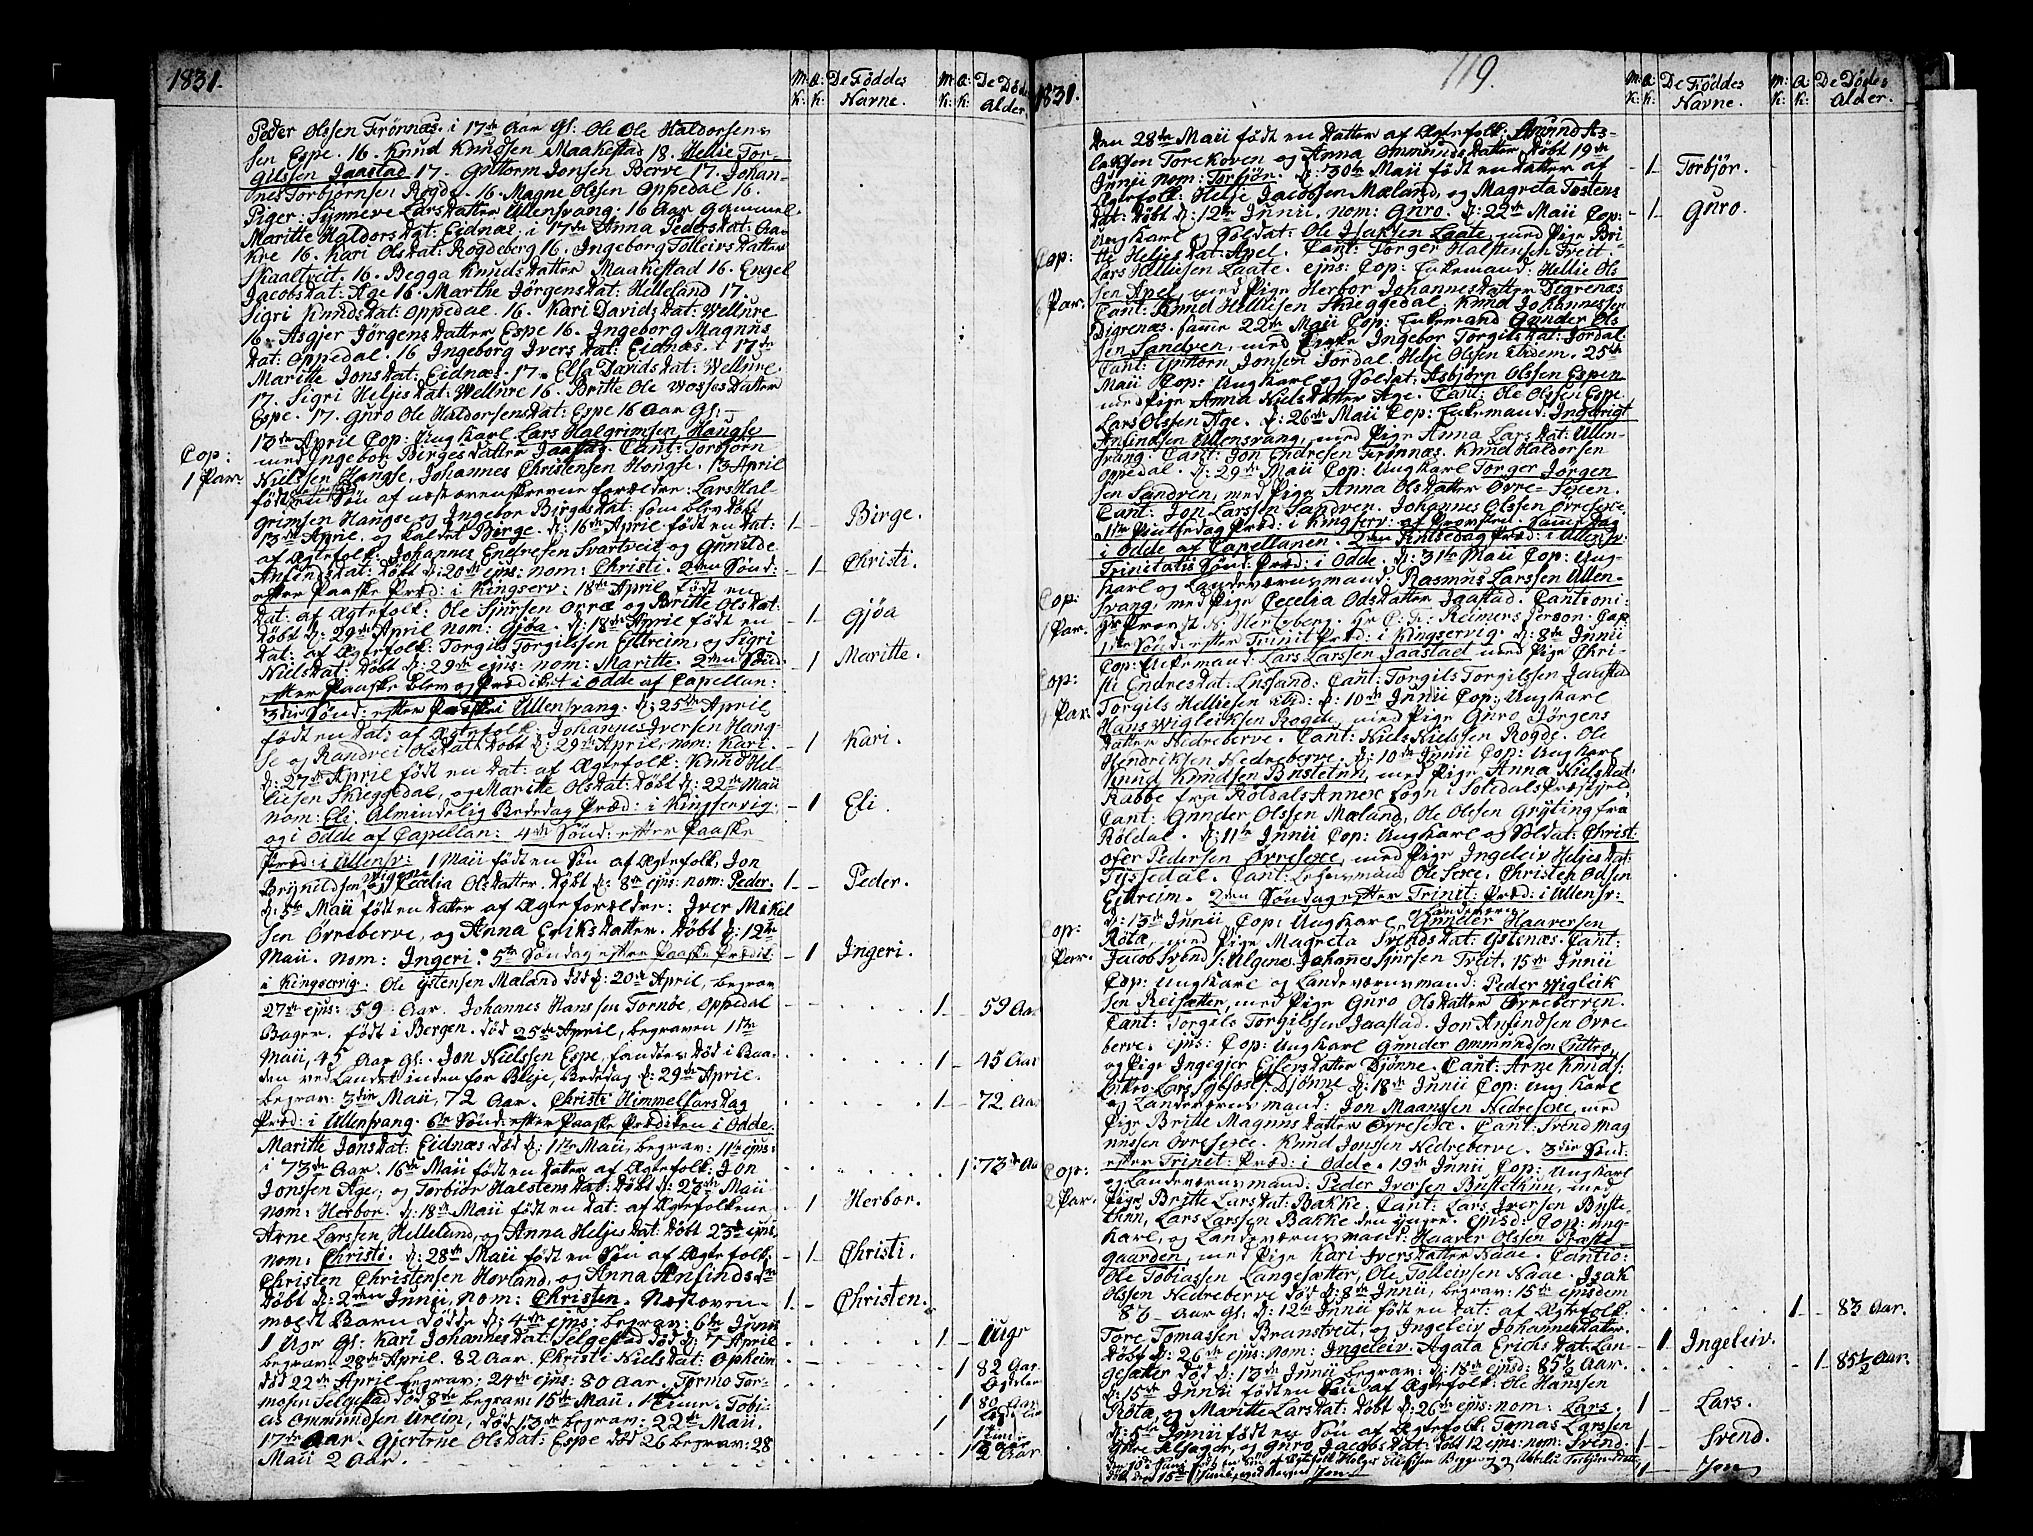 1831.
M: K:
Q: K:
De Föddes Navne.
M: K:
Q: K:
De Döde Alder.
Peder Olssen Frönnæs. i 17de Aar gl: Ole Ole Haldorsens
sen Espe. 16. Knud Knudsen Maakestad 18. Hellie Tor-
gilssen Jaastad 17. Guttorm Jonsen Berve 17. Johan-
nes Torbjörnsen Rogde. 16. Magne Olssen Oppedal 16.
Piger: Synneve Larsdatter Ullensvang: 16 Aar gammel.
Maritte Haldorsdat: Eidnæs. i 17de Anna Pedersdat: Aa-
kre 16. Kari Olsdat: Rogdeberg 16. Ingeborg Tolleivsdatter
Skaaltveit 16. Begga Knudsdatter Maakestad 16. Engel
Jacobsdat: Age 16. Marthe Jörgensdat: Helleland 17.
Sigri Knudsdat: Oppedal. 16. Kari Davidsdat: Wellure
16. Asgjer Jörgensdatter Espe 16. Ingeborg Magnus
dat: Oppedal. 16 Ingeborg Ivers dat: Eidnæs. i 17de
Maritte Jonsdat: Eidnæs. 17. Elsa Davidsdat: Wellure
17. Sigri Heljesdat: Wellure 16. Britte Ole Wossesdatter
Espe. 17. Guro Ole Haldorsensdat: Espe 16 Aar gl:
Cop: 1 Par
13de April Cop: Ungkarl Lars Halgrimsen Haugse
med Ingebor Birgesdatter Jaastad. Cant: Torbjörn
Nielssen Haugse, Johannes Christensen Hougse. 13 April
födt en Sön af næstovenskrevne forældre: Lars Hal-
grimsen Haugse og Ingebor Birgesdat: som blev döbt
13de April. og kaldet Birge. d: 16de April födt en dat:
af Ægtefolk: Johannes Endresen Svartveit og Gunilde
Anfindsdat: döbt d: 20de ejus: nom: Christi. 2den Sönd:
efter Paaske Præd: i Kingserv: 18de April födt en
dat: af Ægtefolk: Ole Sjursen Orræ og Britte Olsdat:
döbt d: 29de April nom: Gjöa. d: 18de April födt en
dat: af Ægtefolk: Torgils Torgilssen Eittreim, og Sigri
Nielsdat: döbt d: 29de ejus: nom: Maritte. 2den Sönd:
efter Paaske blev og Prædiket i Odde af Capellan:
3die Sönd: efter Paaske i Ullensvang. d: 25de April
födt en dat: af Ægtefolk: Johannes Iversen Haug-
se og Randvei Olsdat: döbt d: 29de April, nom: Kari.
d: 27de April födt en dat: af Ægtefolk: Knud Hel-
liesen Skieggedal, og Maritte Olsdat: döbt d: 22de Maii
nom: Eli. Almindelig Bededag Præd: i Kingservig:
og i Odde af Capellan: 4de Sönd: efter Paaske
Præd: i Ullensv: 1 Maii födt en Sön af Ægtefolk, Jon
Brynildsen og Cecelia Olsdatter. döbt d: 8de ejus: nom: Peder.
d: 5te Maii födt en datter af Ægteforældre: Iver Mikel
sen Örreberve, og Anna Eriksdatter. döbt d: 12te
Maii. nom: Ingeri. 5te Söndag efter Paaske Prædik:
i Kingservig: Ole Ystensen Mæland död d: 20de April, begrav:
27de ejus: 59 Aar. Johannes Hanssen Tornöe, Oppedal
Bager. födt i Bergen. död 25de April, begraven 1ste
Maii, 45 Aar gl:. Jon Nielssen Espe, fandtes död i Baa-
den ved Landet inden for Bleje, Bededag d: 29de April.
begrav: 3die Maii, 72 Aar. Christi Himmelfarsdag
Præd: i Ullensvang. 6te Sönd: efter Paaske Prædiken i Odde.
Maritte Jonsdat: Eidnæs död d: 1ste Maii, begrav: 11te ejus:
i 73de Aar. 16de Maii födt en datter af Ægtefolk: Jon
Jonssen Age; og Torbiör Halstensdat: döbt d: 22de Maii
nom: Herbor. d: 18de Maii födt en dat: af Ægtefolkene
Arne Larssen Helleland, og Anna Heljesdat: döbt 23de ejus,
nom: Christi. d: 28de Maii födt en Sön af Ægtefolk:
Christen Christensen Hovland, og Anna Anfindsdr
döbt d: 2den Junii, nom: Christen. Næstoven-
mældt Barn döde d: 4de ejus: begrav: 6te Junii
1 Uge gl: Kari Johannesdat: Selgestad död d: 7 April
begrav: 28de April. 82 Aar. Christi Nielsdat: Opheim
död 22de April begrav: 24de ejus: 80 Aar. Tormo Tor-
mosen Selgestad död 8de begrav: 15de Maii. Tobi-
as Ommundsen Areim, död 13de begrav: 22de Maii.
17de Aar. Gjertrue Olsdat: Espe död 26 begrav: 28
Maii 2 Aar.
1 Birge.
1 Christi.
1 Gjöa
1 Maritte.
1 Kari.
1 Eli.
1 Peder.
1 Ingeri.
1 59 Aar
1 45 Aar
1 72. Aar
1 73de Aar
1 Herbor.
1 Christi.
1 Christen.
1 1 Uge
1 82 Aar.
1 80 Aar
1 2 Aar
1831.
119.
M: K:
Q: K:
De Föddes Navne.
M: K:
Q: K:
De Dödes Alder.
den 28de Maii födt en datter af Ægtefolk: Aamund As-
laksen Torekoven og Anna Ommundsdatter döbt 19de
Junii nom: Torbjör. d: 30te Maii födt en datter af
Ægtefolk: Helje Jacobsen Mæland, og Magreta Tostens
dat: döbt d: 12te Junii. nom: Guro. d: 22de Maii Cop:
Ungkarl og Soldat: Ole Isaksen Laate, med Pige Bri-
tte Heljesdat: Apel. Cant: Torger Halstensen Freit.
Lars Helliesen Laate. ejus: Cop: Enkemand: Hellie Ols
sen Apel, med Pige Herbor Johannesdatter Digrenæs
Cant: Knud Helliesen Skieggedal. Knud Johannessen
Digrenæs. Samme 22de Maii Cop: Enkemand Gunder Ols
sen Sandven, med Enke Ingebor Torgilsdat: Jordal.
Cant: Guttorm Jonsen Jordal. Helje Olssen ibidem. 25de
Maii Cop: Ungkarl og Soldat: Asbjörn Olssen Espen
med Pige Anna Nielsdatter Age. Cant: Ole Olssen Espe.
Lars Olssen Age. d: 26de Maii Cop: Enkemand: Ingebrigt
Anfindsen Ullensvang, med Pige Anna Larsdat: Ullen-
svang. Cant: Jon Endresen Frönnæs. Knud Haldorsen
Oppedal. d: 29de Maii Cop: Ungkarl Torger Jörgen
sen Sandven, med Pige Anna Olsdatter Övre-Sexen.
Cant: Jon Larssen Sandven. Johannes Olssen Övresexe.
1ste Pintsedag Præd: i Kingserv: af Provsten. Samme Dag
i Odde af Capellanen. 2den Pintsedag Præd: i Ullensv:
Trinitatis Sönd: Præd: i Odde. d: 31te Maii Cop: Ung-
karl og Landeværnsmand: Rasmus Larssen Ullen-
svang, med Pige Cecelia Odsdatter Jaastad. Cantioni:
Hr Provst N: Hertzberg. Hr C: F: Reimers Person: Cap:
1ste Sönd: efter Trinit Præd: i Kingservig. d: 8de Junii
Cop: Enkemand: Lars Larssen Jaastad med Pige Chri-
sti Endresdat: Lusand: Cant: Torgils Torgilssen Jaastad
Torgils Helliesen ibid: d: 10de Junii Cop: Ungkarl
Hans Wigleiksen Rogde, med Pige Guro Jörgens
datter Nedreberve. Cant: Niels Nielssen Rogde. Ole
Hendriksen Nedreberve. d: 10de Junii Cop: Ungkarl
Knud Knudsen Bustetun, med Pige Anna Nielsdat:
Rabbe fra Röldals Annex Sogn i Soledals Præstgjeld.
Cant: Gunder Olssen Mæland, Ole Olssen Gryting fra
Röldal. d: 11te Junii Cop: Ungkarl og Soldat: Christ-
ofer Pedersen Övresexe, med Pige Ingeleiv Heljesdat:
Tyssedal. Cant: Lensmand Ole Sexe. Christen Odsen
Eitreim. 2den Söndag efter Trinit: Præd: i Ullensv:
d: 13de Junii Cop: Ungkarl og Landeværn: Gunder Haaversen
Röte, med Pige Magreta Svendsdat: Ystenæs. Cant:
Jacob Svends: Ulgenes. Johannes Sjursen Treit. 15de Junii
Cop: Ungkarl og Landeværnsmand: Peder Wigleik
sen Reisæter, med Pige Guro Olsdatter Örreberven.
Cant: Torgils Torgilssen Jaastad. Jon Anfindsen Örre-
berve. ejus: Cop: Ungkarl Gunder Ommundsen Eittro,
og Pige Ingegjer Eilersdatter Djönne. Cant: Arne Knuds:
Djönne. d: 18de Junii Cop: Ungkarl
og Landeværnsmand: Jon Maanssen Nedresexe, med
Pige Britte Magnusdatter Övresexe. Cant: Svend Mag
nussen Övresexe. Knud Jonssen Nedreberve. 3die Sönd:
efter Trinit: Præd: i Odde. 19de Junii Cop: Ungkarl
og Landeværnsmand: Peder Iversen Bustethun, med
Pige Britte Larsdat: Bakke. Cant: Lars Iversen Buste-
thun, Lars Larssen Bakke den yngre. ejusd: Cop: Ung-
karl, og Landeværnsmand: Haaver Olssen Præste-
gaarden, med Pige Kari Iversdatter Naae. Cantio:
Ole Tobiassen Langesætter, Ole Tolleivsen Naae. Isak
Olssen Nedreberve död d: 8de Junii, begrav: 15de ejusdem
83 Aar gl: d: 12te Junii födt en dat: af Ægtefolk:
Tore Tomassen Branstveit, og Ingeleiv Johannesdatter.
döbt d: 26de ejus: nom: Ingeleiv. Agata Erichsdat: Lan-
gesæter död d: 13de Junii begrav: d: 18de ejusd: 85½ Aar.
d: 15de Junii födt en Sön af Ægtefolk: Ole Hanssen
Röte, og Maritte Larsdat: döbt d: 26de ejus: nom: Lars.
d: 5te Junii födt en Sön af Ægtefolk: Tomas Larssen
og Guro Jacobsdat: döbt 12 ejus: nom: Svend.
Cop: 6 Par.
Cop: 1 Par.
Cop: 1 Par.
Cop: Par.
Cop: 2 Par.
1 Torbjör.
1 Guro.
1 83 Aar.
1 Ingeleiv.
1 85½ Aar.
1 Lars.
1 Svend.
1 Jon